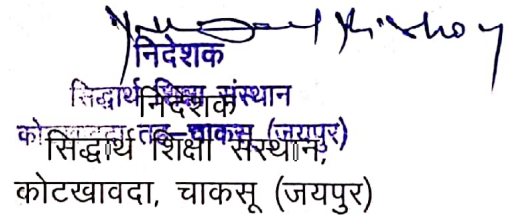 निदेशक
सिद्धार्थ शिक्षा संस्थान
निदेशक
तह–चाकसू (जयपुर)
सिद्धार्थ शिक्षा संस्थान,
कोटखावदा, चाकसू (जयपुर)